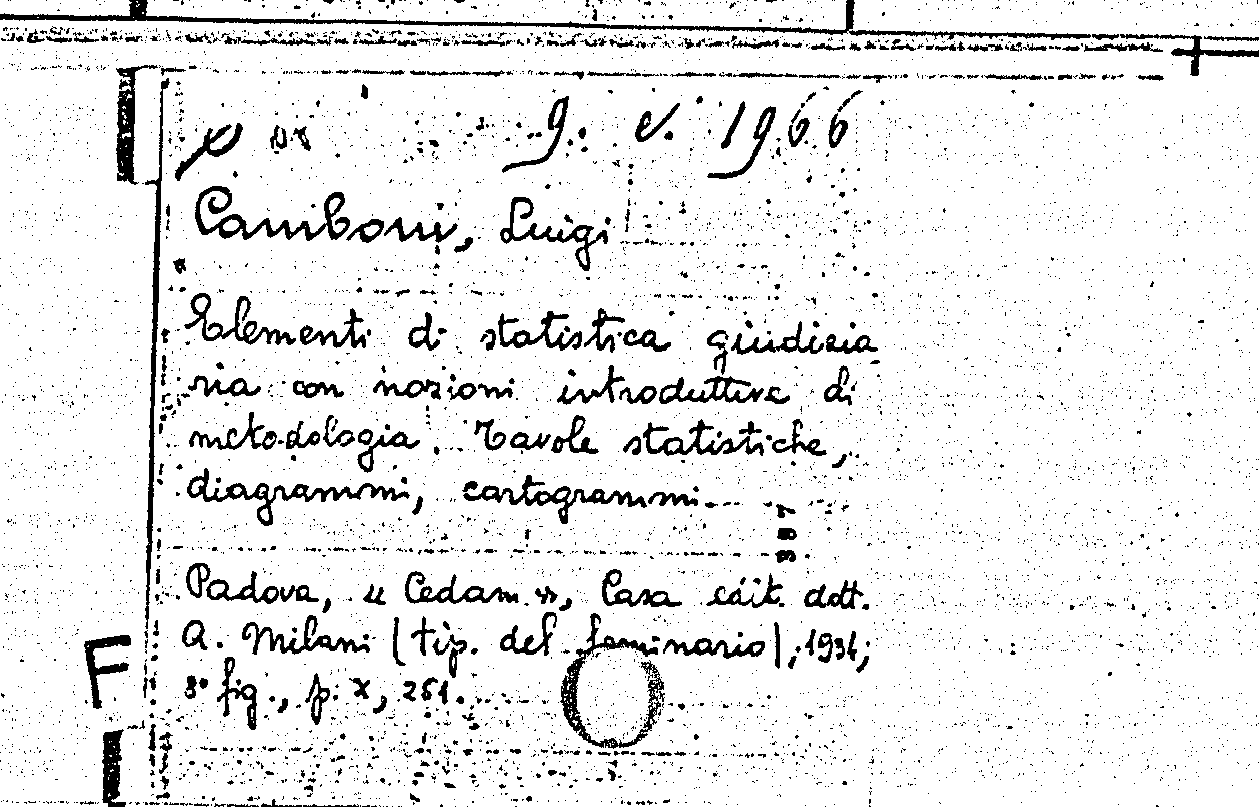 9. c. 1966
Camboni, Luigi
Elementi di statistica giudizia
ria con nozioni introduttive di
metodologia. Tavole statistiche,
diagrammi, cartogrammi.
387
Padova, « Cedam », Casa edit. dott.
A. Milani (tip. del Seminario), 1934;
8° fig., p. X, 261.
F